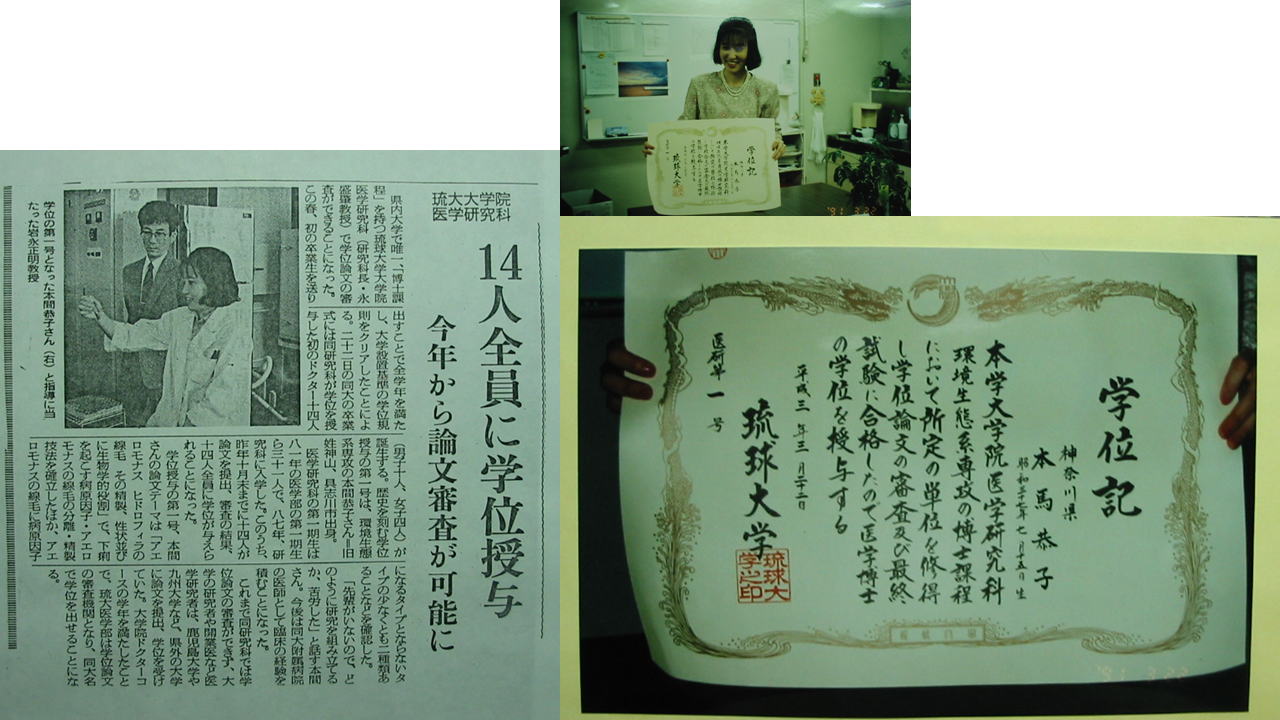 琉大大学院
医学研究科
14人全員に学位授与
今年から論文審査が可能に
県内大学で唯一、「博士課
程」を持つ琉球大学大学院
医学研究科(研究科長・永
盛肇教授)で学位論文の審
査ができることになった。
この春、初の卒業生を送り
出すことで全学年を満た
し、大学設置基準の学位規
則をクリアしたことによ
る。二十二日の同大の卒業
式には同研究科が学位を授
与した初のドクター十四人
(男子十人、女子四人)が
誕生する。歴史を刻む学位
授与の第一号は、環境生態
系専攻の本間恭子さん=旧
姓神山、具志川市出身。
医学研究科の第一期生は
八一年の医学部の第一期生
ら三十一人で、八七年、研
究科に入学した。このうち、
昨年十月末までに十四人が
論文を提出、審査の結果、
十四人全員に学位が与えら
れることになった。
学位授与の第一号、本間
さんの論文テーマは「アエ
ロモナス ヒドロフィラの
線毛 その精製、性状並び
に生物学的役割」で、下痢
を起こす病原因子・アエロ
モナスの線毛の分離・精製
技法を確立したほか、アエ
ロモナスの線毛に病原因子
になるタイプとならないタ
イプの少なくとも二種類あ
ることなどを確認した。
「先輩がいないので、ど
のように研究を組み立てる
か、苦労した」と話す本間
さん。今後は同大附属病院
の医師として臨床の経験を
積むことになった。
これまで同研究科では学
位論文の審査ができず、大
学の研究者や開業医など医
学研究者は、鹿児島大学や
九州大学など、県外の大学
に論文を提出、学位を受け
ていた。大学院ドクターコ
ースの学年を満たしたこと
で、琉大医学部は学位論文
の審査機関となり、同大名
で学位を出せることにな
る。
学位の第一号となった本間恭子さん(右)と指導に当
たった岩永正明教授
学位記
琉球大学
'91 3.22
学位記
神奈川県
本馬恭子
本学大学院医学研究科
環境生態系専攻の博士課程
において所定の単位を修得
し学位論文の審査及び最終
試験に合格したので医学博士
の学位を授与する
平成三年三月二十二日
琉球大学
琉球大学之印
医研第一号
'91 3.22